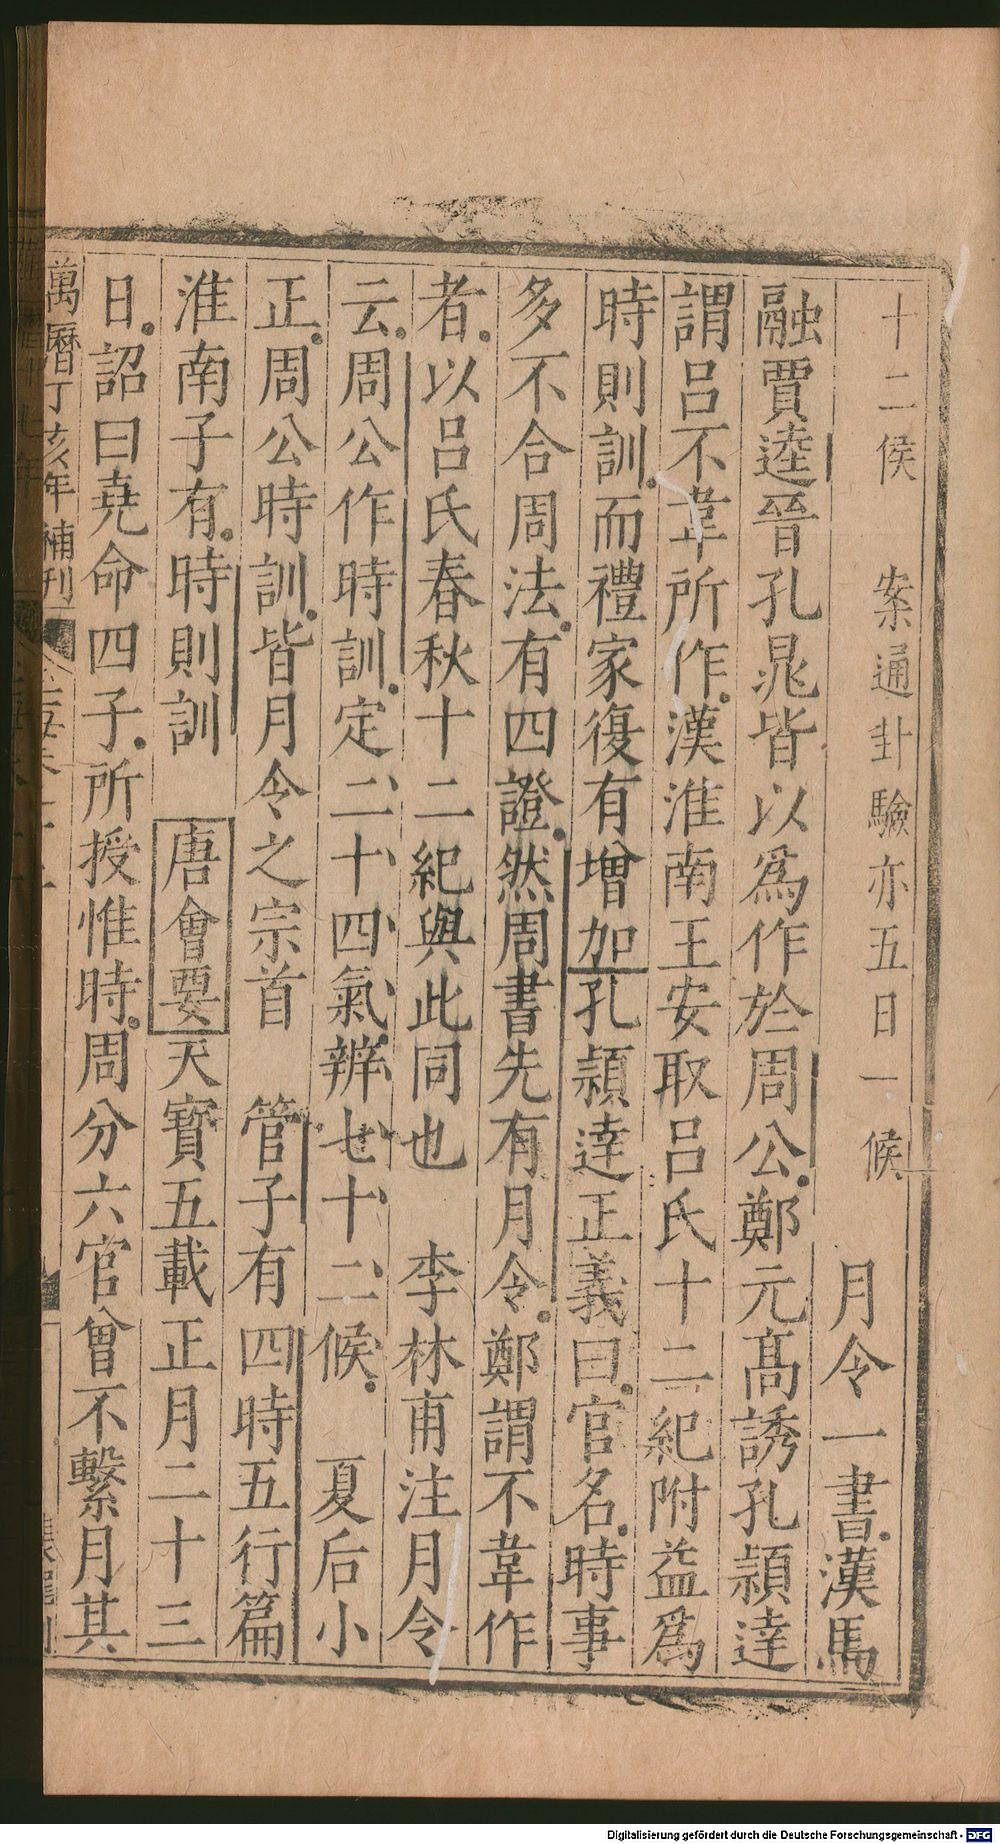 十二候 案通卦驗亦五日一候 月令一書漢馬
融賈逵晉孔晁皆以爲作於周公鄭元高誘孔頴達
謂呂不韋所作漢淮南王安取呂氏十二紀附益爲
時則訓而禮家復有增加孔頴達正義曰官名時事
多不合周法有四證然周書先有月令鄭謂不韋作
者以呂氏春秋十二紀與此同也 李林甫注月令
云周公作時訓定二十四氣辨七十二候 夏后小
正周公時訓皆月令之宗首 管子有四時五行篇
淮南子有時則訓 唐會要天寶五載正月二十三
日詔曰堯命四子所授惟時周分六官曾不繫月其
萬曆丁亥年補刊
Digitalisierung gefördert durch die Deutsche Forschungsgemeinschaft - DFG